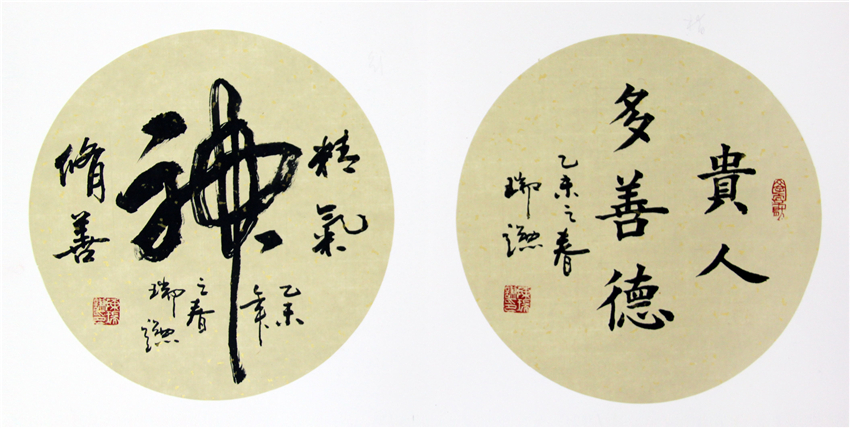 精氣
神
脩善
乙未
年
之春
瑞
貴人
多善德
乙未之春
瑞